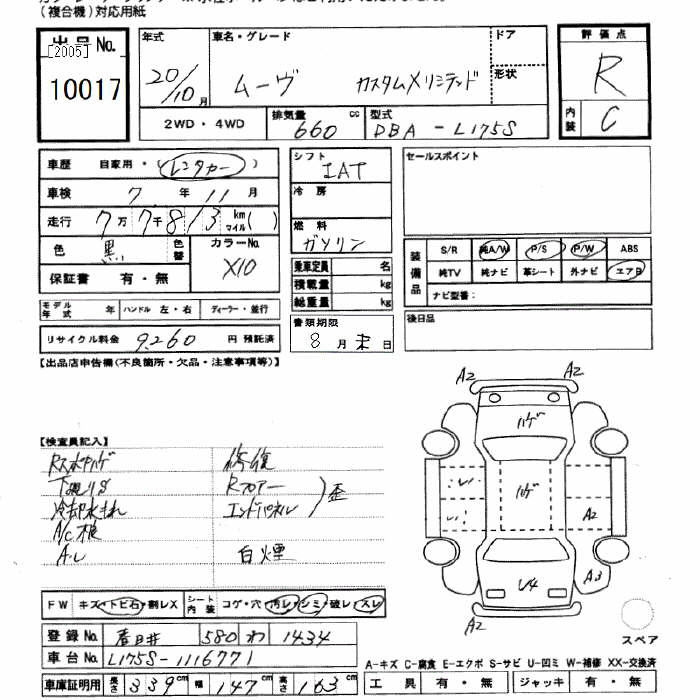 (複合機)対応用紙
出品No. 年式 車名・グレード ドア 評価点
[2005]
10017 20/10月 ムーヴ カスタムXリミテッド 形状 R
2WD・4WD 排気量 660 cc 型式 DBA-L175S 内装 C
車歴 自家用・(レンタカー) シフト IAT セールスポイント
車検 7年 11月 冷房
走行 7万7千813 km マイル( ) 燃料 ガソリン
色 黒 色替 カラーNo. X10
保証書 有・無
乗車定員 名
積載量 kg
総重量 kg
装備品 S/R 純A/W P/S P/W ABS
純TV 純ナビ 革シート 外ナビ エアB
ナビ型番:
モデル年式 年 ハンドル 左・右 ディーラー・並行
書類期限 8月末日
後日品
リサイクル料金 9,260 円 預託済
【出品店申告備(不良箇所・欠品・注意事項等)】
A2 A2
ハゲ
【検査員記入】
修復
下廻りS Rフロアー
冷却水もれ エンドパネル 歪
A/C
白煙
ハゲ
A2
A3
U4
A2 A2
FW キズ・トビ石・割レX シート内装 コゲ・穴 汚レ・シミ・破レ・スレ
スペア
登録No. 春日井 580 わ 1434
車台No. L175S-1116771
車庫証明用 長さ 339cm 幅 147cm 高さ 163cm
A-キズ C-腐食 E-エクボ S-サビ U-凹ミ W-補修 XX-交換済
工具 有・無 ジャッキ 有・無